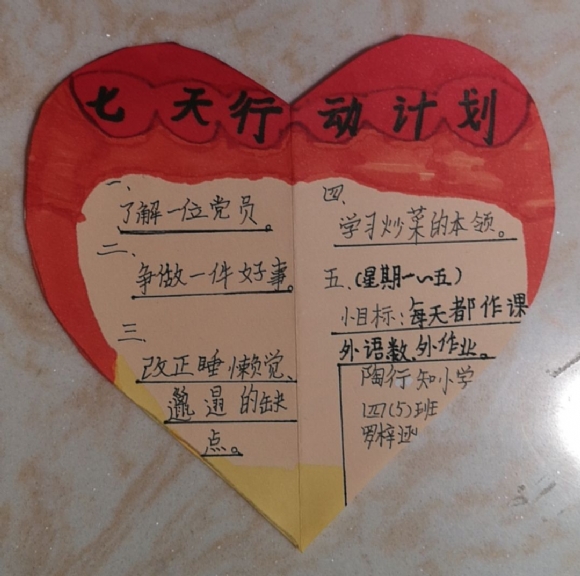 七天行动计划
一、
了解一位党员。
二、
争做一件好事。
三
改正睡懒觉、
邋遢的缺
点。
四.
学习炒菜的本领。
五、(星期一~五)
小目标:每天都作课
外语数、外作业。
陶行知小学
四(5)班
罗梓